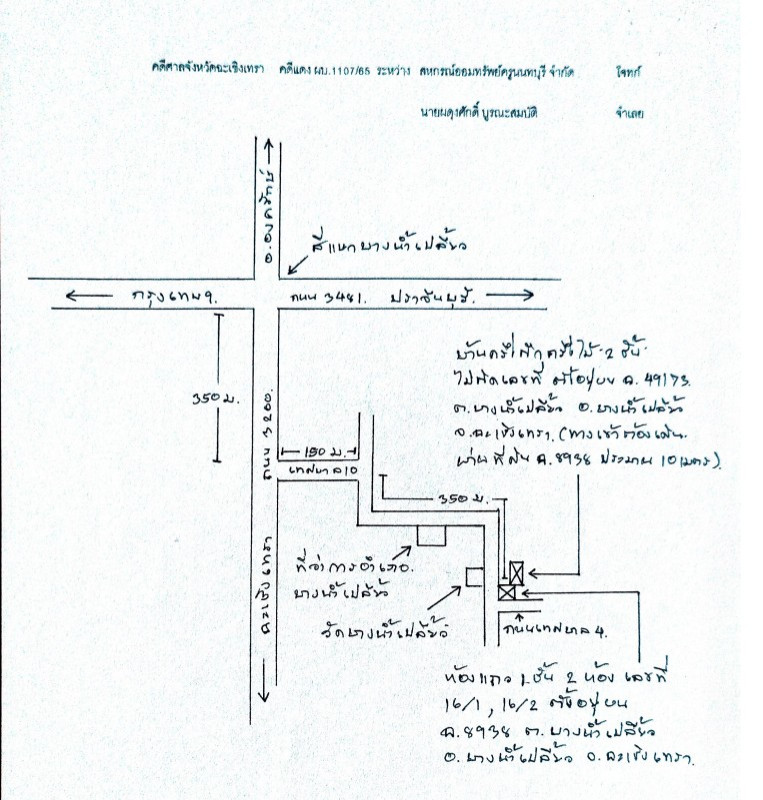 คดีศาลจังหวัดฉะเชิงเทรา คดีแดง ผบ.1107/65 ระหว่าง สหกรณ์ออมทรัพย์ครูนนทบุรี จำกัด โจทก์
นายผดุงศักดิ์ บูรณะสมบัติ จำเลย
อ.องครักษ์
สี่แยกบางน้ำเปรี้ยว
กรุงเทพฯ ถนน 3481. ปราจีนบุรี
350 ม.
ถนน 3200.
150 ม.
เทศบาล 10
ฉะเชิงเทรา
บ้านครึ่งตึกครึ่งไม้ 2 ชั้น
ไม่ติดเลขที่ ตั้งอยู่บน ฉ. 49173
ต.บางน้ำเปรี้ยว อ.บางน้ำเปรี้ยว
จ.ฉะเชิงเทรา. (ทางเข้าต้องเดิน
ผ่านที่ดิน ฉ.8938 ประมาณ 10 เมตร).
350 ม.
ที่ว่าการอำเภอ.
บางน้ำเปรี้ยว
วัดบางน้ำเปรี้ยว
ถนนเทศบาล 4.
ห้องแถว 1 ชั้น 2 ห้อง เลขที่
16/1, 16/2 ตั้งอยู่บน
ฉ.8938 ต.บางน้ำเปรี้ยว
อ.บางน้ำเปรี้ยว จ.ฉะเชิงเทรา.